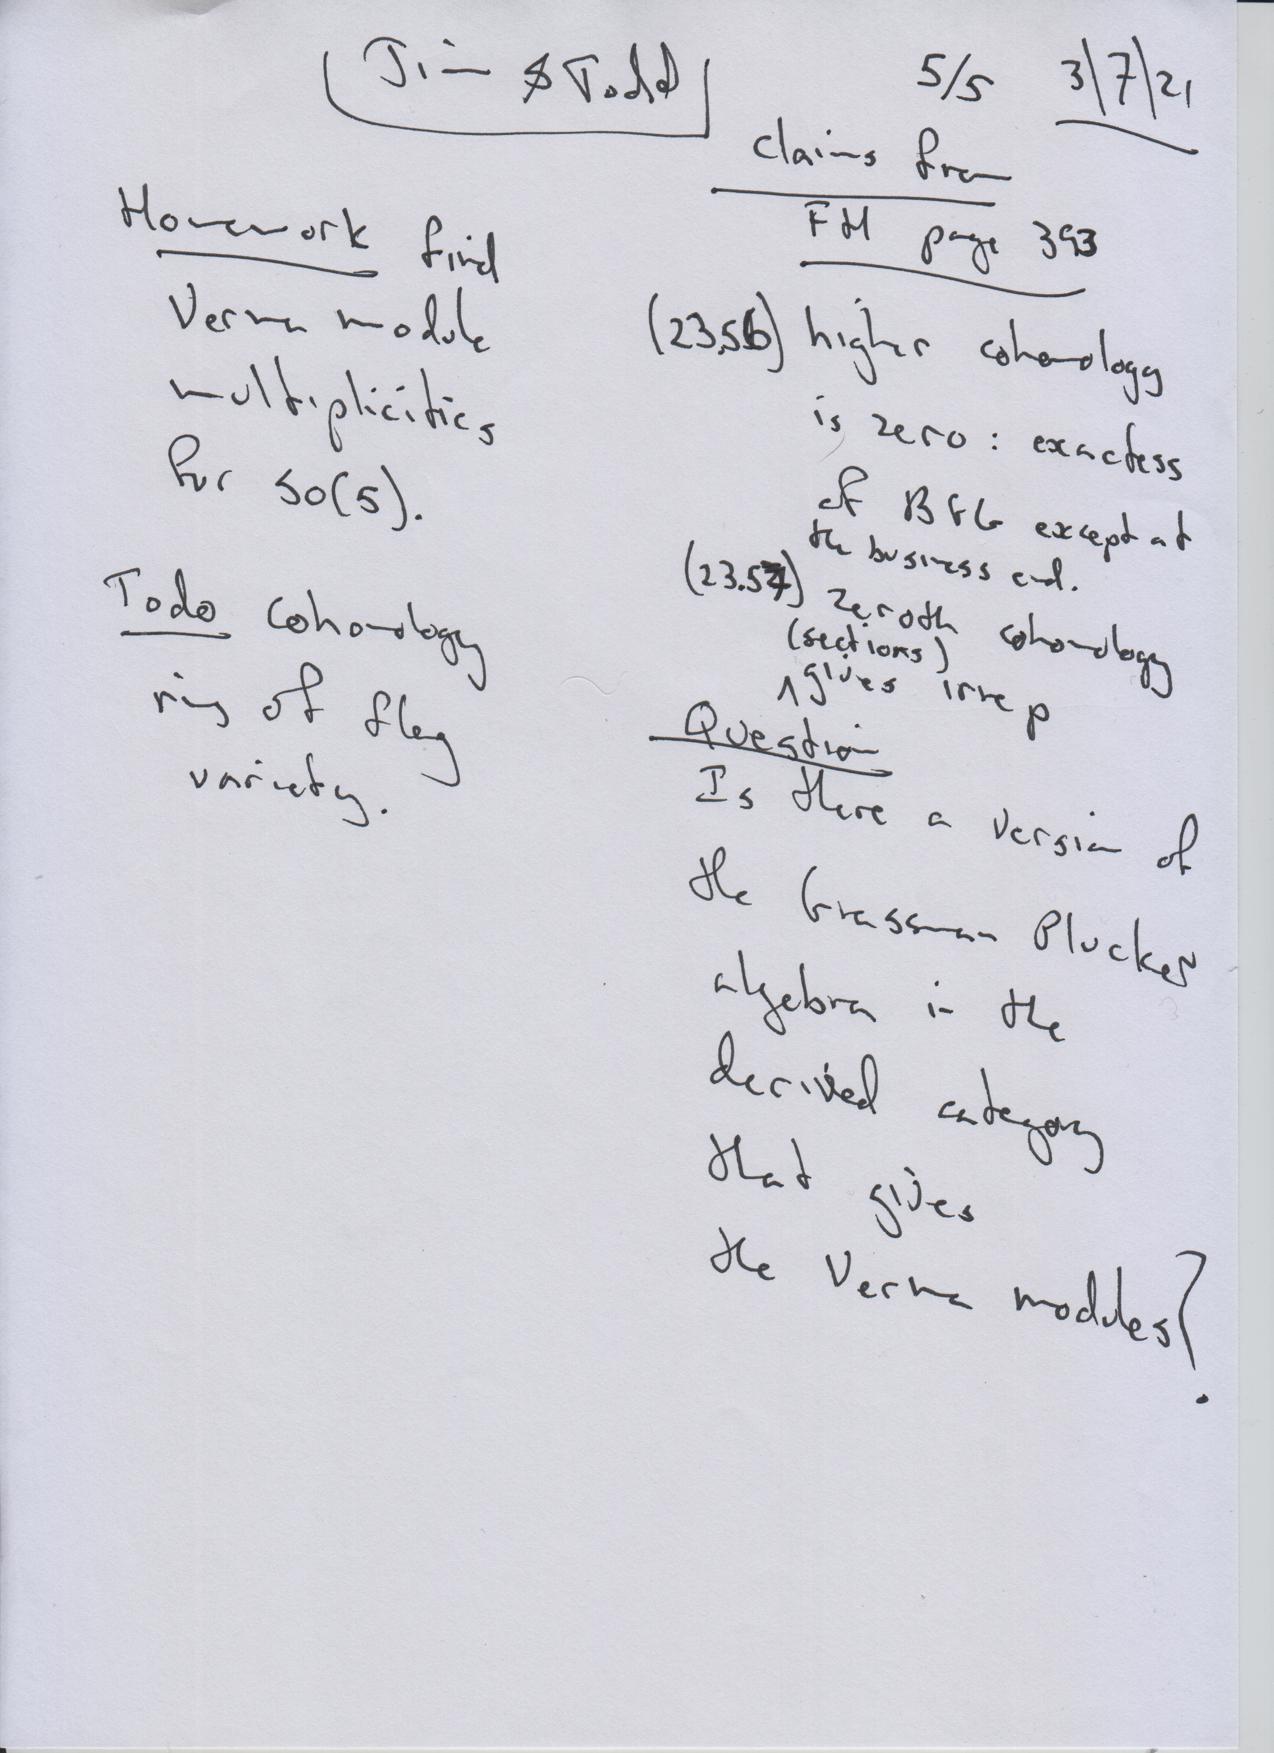 Jim & Todd
5/5 3/7/21
Homework find
Verma module
multiplicities
for so(5).
Todo cohomology
ring of flag
variety.
claims from
FH page 393
(23.56) higher cohomology
is zero: exactess
of BGG except at
the business end.
(23.57) zeroth cohomology
(sections)
gives irrep
Question
Is there a version of
the Grassman Plucker
algebra in the
derived category
that gives
the Verma modules?